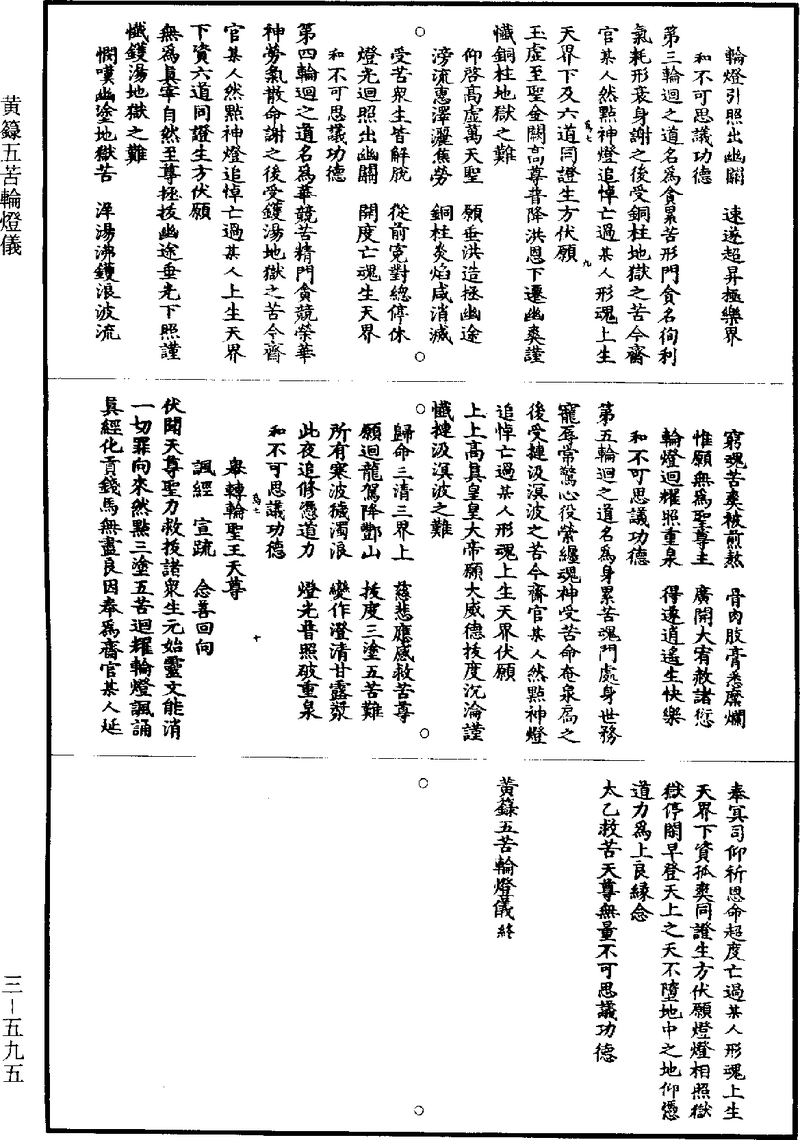 黄籙五苦輪燈儀
輪燈引照出幽關　速遂超昇極樂界
和不可思議功德
第三輪迴之道名為貪累苦形門貪名徇利
氣耗形衰身謝之後受銅柱地獄之苦今齋
官某人然點神燈追悼亡過某人形魂上生
天界下及六道同證生方伏願
玉虛至聖金闕高尊昔降洪恩下遷幽爽謹
懺銅柱地獄之難
仰啓高虛萬天聖　願垂洪造拯幽途
滂流惠澤灑焦勞　銅柱炎焰咸消滅
受苦衆生皆解脫　從前寃對總停休
燈光迴照出幽關　開度亡魂生天界
和不可思議功德
第四輪迴之道名為華競苦精門貪競榮華
神勞氣散命謝之後受鑊湯地獄之苦今齋
官某人然點神燈追悼亡過某人上生天界
下資六道同證生方伏願
無為真宰自然至尊拯拔幽途垂光下照謹
懺鑊湯地獄之難
憫嘆幽塗地獄苦　洋湯沸鑊浪波流
窮魂苦爽被煎熬　骨肉肢膏悉糜爛
惟願無為聖尊主　廣開大宥赦諸愆
輪燈迴耀照重泉　得遂逍遙生快樂
和不可思議功德
第五輪迴之道名為身累苦魂門處身世務
寵辱常驚心役縈纏魂神受苦命奄泉扃之
後受揵汲溟波之苦今齋官某人然點神燈
追悼亡過某人形魂上生天界伏願
上上高真皇皇大帝願大威德拔度沉淪謹
懺揵汲溟波之難
歸命三清三界上　慈悲應感救苦尊
願迴龍駕降酆山　拔度三塗五苦難
所有寒波穢濁浪　變作澄清甘露漿
此夜追修憑道力　燈光普照破重泉
和不可思議功德
舉轉輪聖王天尊
諷經　宣疏　念善回向
伏聞天尊聖力救拔諸衆生元始靈文能消
一切罪向來然點三塗五苦迴耀輪燈諷誦
真經化貢錢馬無盡良因奉為齋官某人延
奉冥司仰祈恩命超度亡過某人形魂上生
天界下資孤爽同證生方伏願燈燈相照獄
獄停閑早登天上之天不墮地中之地仰憑
道力為上良緣念
太乙救苦天尊無量不可思議功德
黃籙五苦輪燈儀終
三－五九五